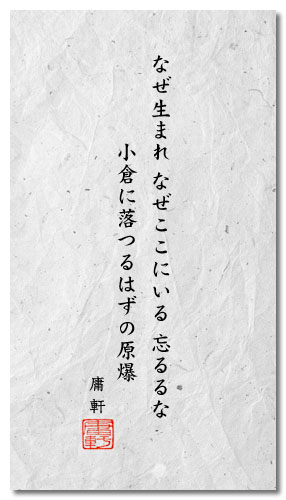 なぜ生まれ なぜここにいる 忘るるな
小倉に落つるはずの原爆
庸軒
庸軒